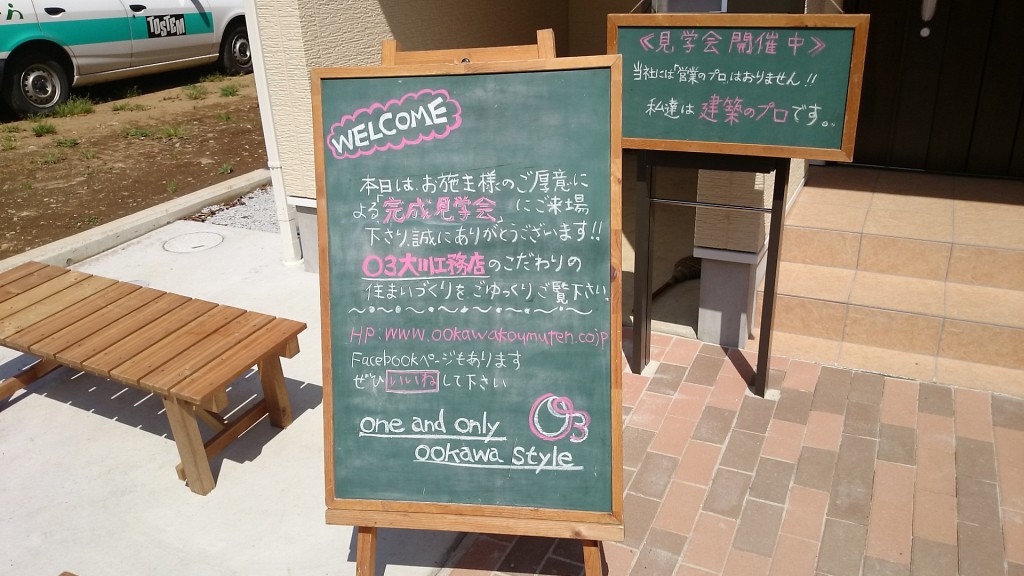 TOSTEM
WELCOME
本日は、お施主様のご厚意に
よる「完成見学会」にご来場
下さり、誠にありがとうございます!!
O3大川工務店のこだわりの
住まいづくりをごゆっくりご覧下さい。
HP:www.ookawakoumuten.cojp
Facebookページもあります
ぜひいいねして下さい
one and only
ookawa style
O3
《見学会開催中》
当社には「営業のプロ」はおりません!!
私達は建築のプロです。